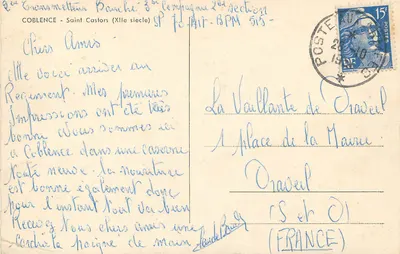 2eme Transmetteur Bauche 3e Compagnie 2e Section
COBLENCE - Saint Castors (XIIe siècle)
SP 70.417 - BPM 515 -
Chers Amis.
Me voici arrivé au
Régiment. Mes premières
impressions ont été très
bonne. Nous sommes ici
à Coblence dans une caserne
toute neuve. La nourriture
est bonne également donc
pour l'instant tout va bien
Recevez tous chers amis une
cordiale poigne de main
POSTE
15F
La Vaillante de Draveil
1 place de la Mairie
Draveil
(S et O)
(FRANCE)